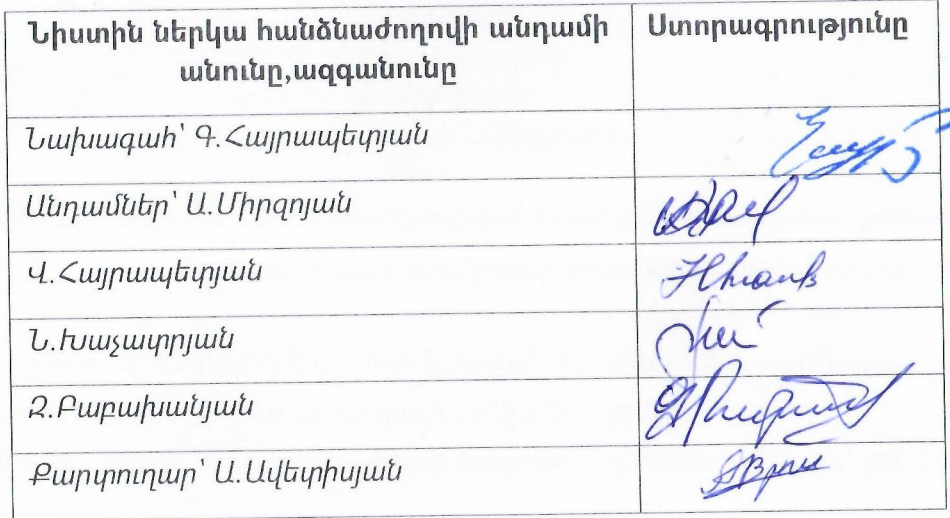 Նիստին ներկա հանձնաժողովի անդամի
անունը,ազգանունը
Ստորագրությունը
Նախագահ՝ Գ.Հայրապետյան
Անդամներ՝ Ա.Միրզոյան
Վ.Հայրապետյան
Ն.Խաչատրյան
Զ.Բաբախանյան
Քարտուղար՝ Ա.Ավետիսյան